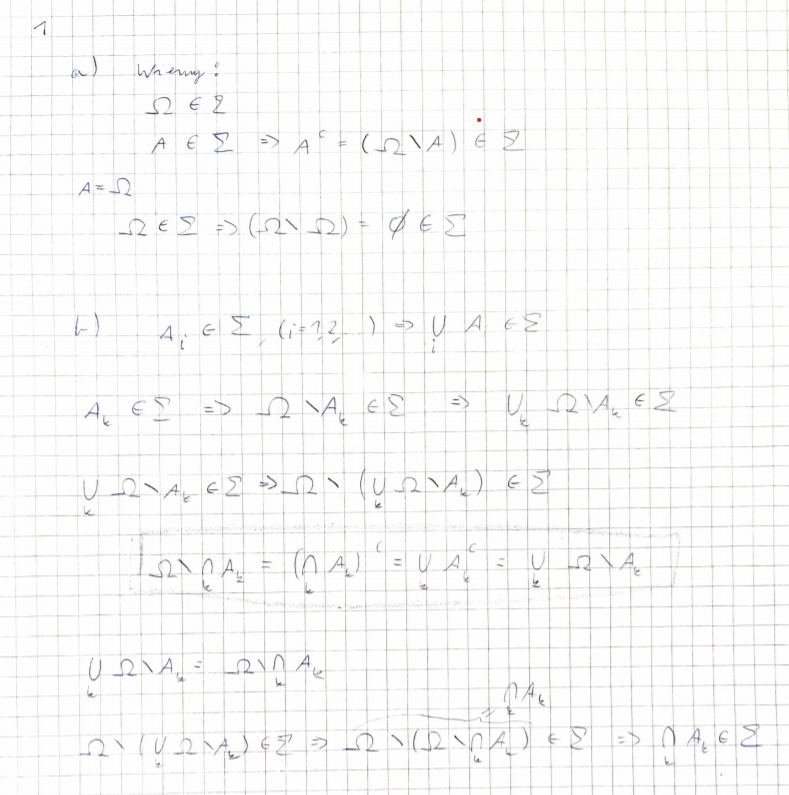 1
a) Wiemy:
Ω ∈ Σ
A ∈ Σ ⇒ A^c = (Ω∖A) ∈ Σ
A = Ω
Ω ∈ Σ ⇒ (Ω∖Ω) = ∅ ∈ Σ
b) A_i ∈ Σ, (i=1,2,...) ⇒ ⋃_i A ∈ Σ
A_k ∈ Σ ⇒ Ω∖A_k ∈ Σ ⇒ ⋃_k Ω∖A_k ∈ Σ
⋃_k Ω∖A_k ∈ Σ ⇒ Ω∖(⋃_k Ω∖A_k) ∈ Σ
Ω∖⋂_k A_k = (⋂_k A_k)^c = ⋃_k A_k^c = ⋃_k Ω∖A_k
⋃_k Ω∖A_k = Ω∖⋂_k A_k
= ⋂_k A_k
Ω∖(⋃_k Ω∖A_k) ∈ Σ ⇒ Ω∖(Ω∖⋂_k A_k) ∈ Σ ⇒ ⋂_k A_k ∈ Σ